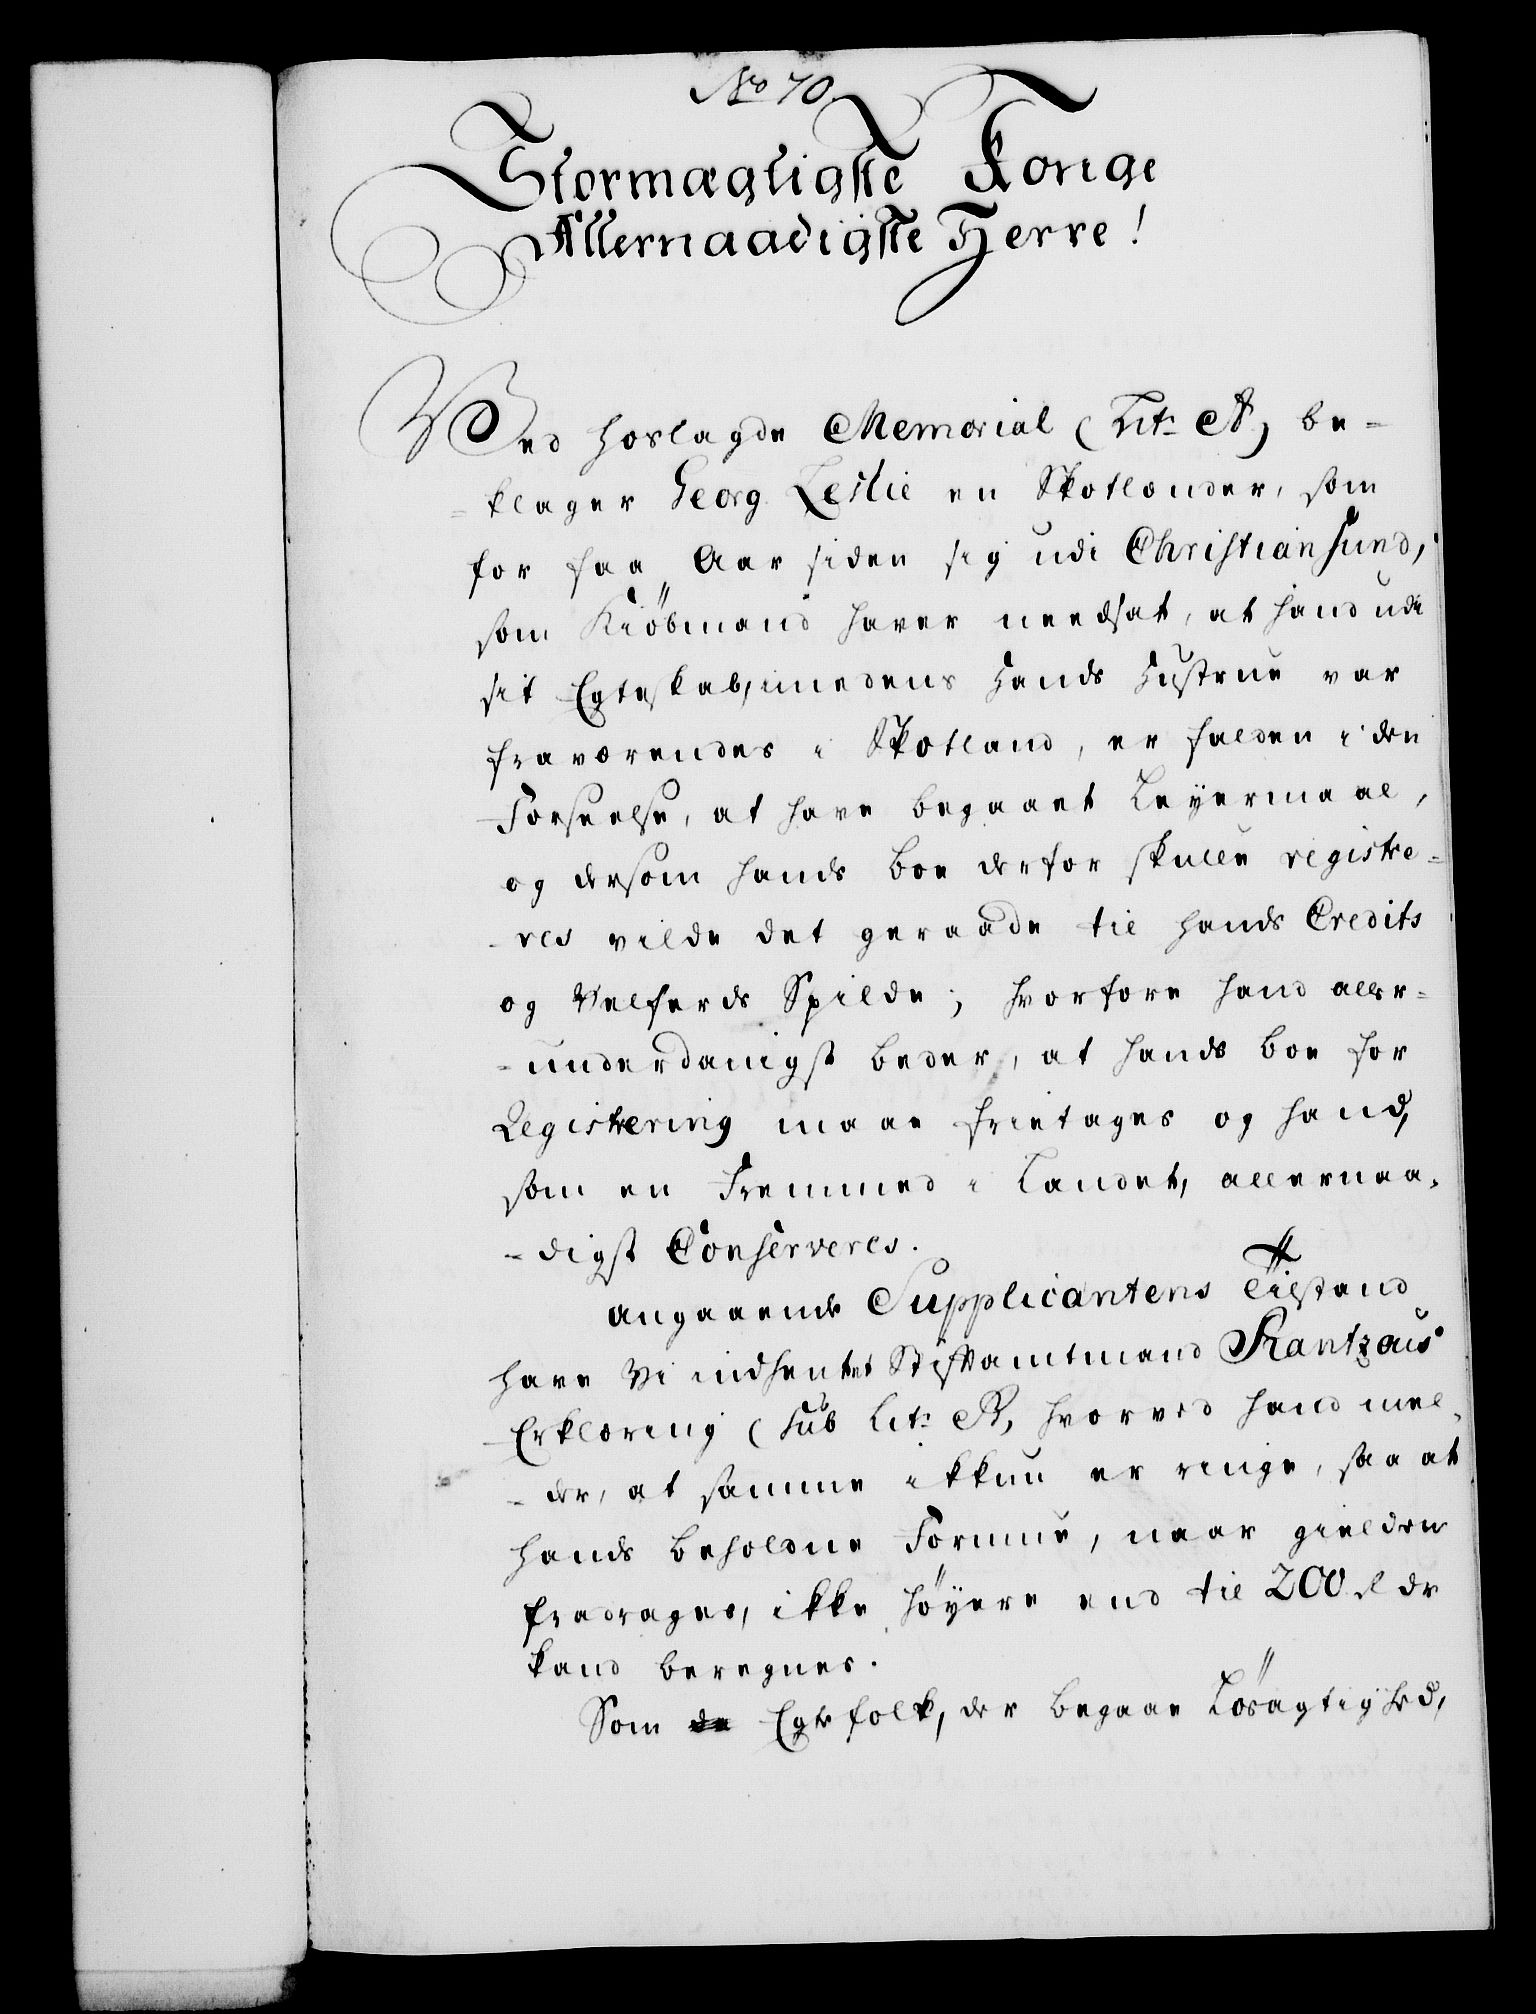 No 70
Stormægtigste Konge
Allernaadigste Herre!
Ved hoslagde Memorial (Lit: A) be-
-klager Georg Leslie en Skotlænder, som
for faa Aar siden sig udi Christiansund,
som Kiöbmand haver needsat, at hand udi
sit Egteskab, imedens Hands Hustrue var
fraværendes i Skotland, er falden i den
Forseelse, at have begaaet Leyermaal,
og dersom hands boe derfor skulle registre-
-res vilde det geraade til hands Credits
og Velferds Spilde; hvorfore hand aller-
-underdanigst beder, at hands boe for
Registrering maae frietages og hand,
som en Fremmed i Landet, allernaa-
-digst Conserveres.
Angaaende Supplicantens Tilstand
have Vi indhentet Stiftamtmand Rantzaus
Erklæring (sub Lit: B, hvorved hand mel-
-der, at samme ikkun er ringe, saa at
hands beholdne Formue, naar gielden
fradrages, ikke höyere end til 200 rdr
kand beregnes.
Som de Egtefolk, der begaae Lösagtighed,